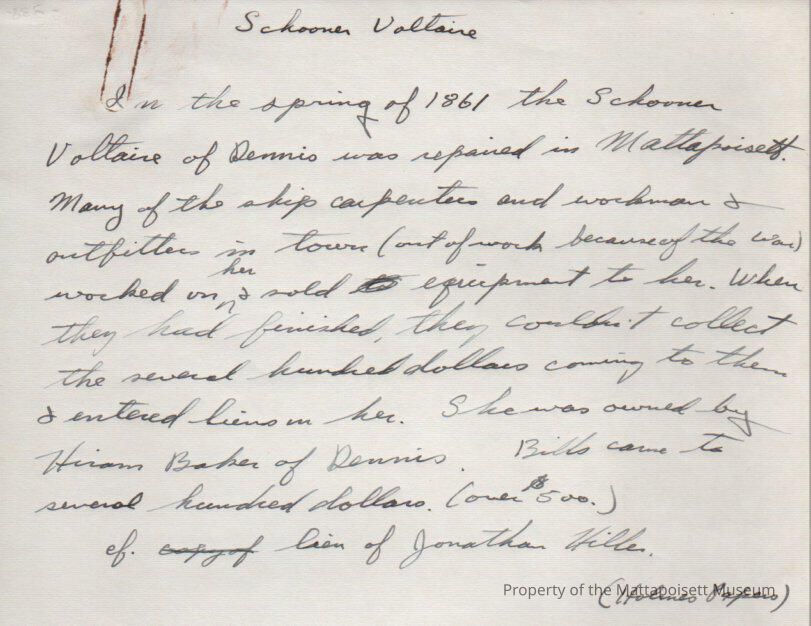 Schooner Voltaire
In the spring of 1861 the Schooner
Voltaire of Dennis was repaired in Mattapoisett.
Many of the ship carpenters and workman &
outfitters in town (out of work because of the war)
worked on her & sold equipment to her. When
they had finished, they couldn't collect
the several hundred dollars coming to them
& entered liens on her. She was owned by
Hiram Baker of Dennis. Bills came to
several hundred dollars. (over $500.)
cf. copy of lien of Jonathan Hiller.
(Holmes Papers)
Property of the Mattapoisett Museum